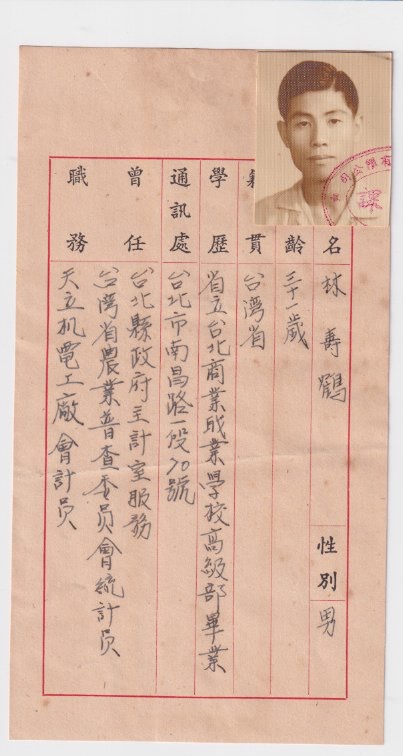 名 林壽鶴 性別 男
齡 三十一歲
貫 台湾省
學歷 省立台北商業成業學校高級部畢業
通訊處 台北市南昌路一段70號
曾任 台北縣政府主計室服務
台湾省農業普查委员會統計员
職務 天立机電工廠會計员